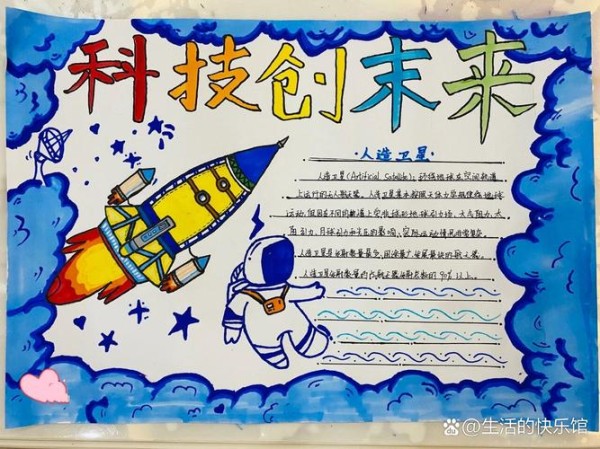 科技创末来
·人造卫星·
人造卫星(Artificial Satellite):环绕地球在空间轨道
上运行的无人航天器。人造卫星基本按照天体力学规律绕地球
运动,但因在不同的轨道上受非球形地球引力场、大气阻力、太
阳引力、月球引力和光压的影响,实际运动情况非常复杂。
人造卫星是发射数量最多、用途最广、发展最快的航天器。
人造卫星发射数量约占航天器发射总数的90%以上。
@生活的快乐馆